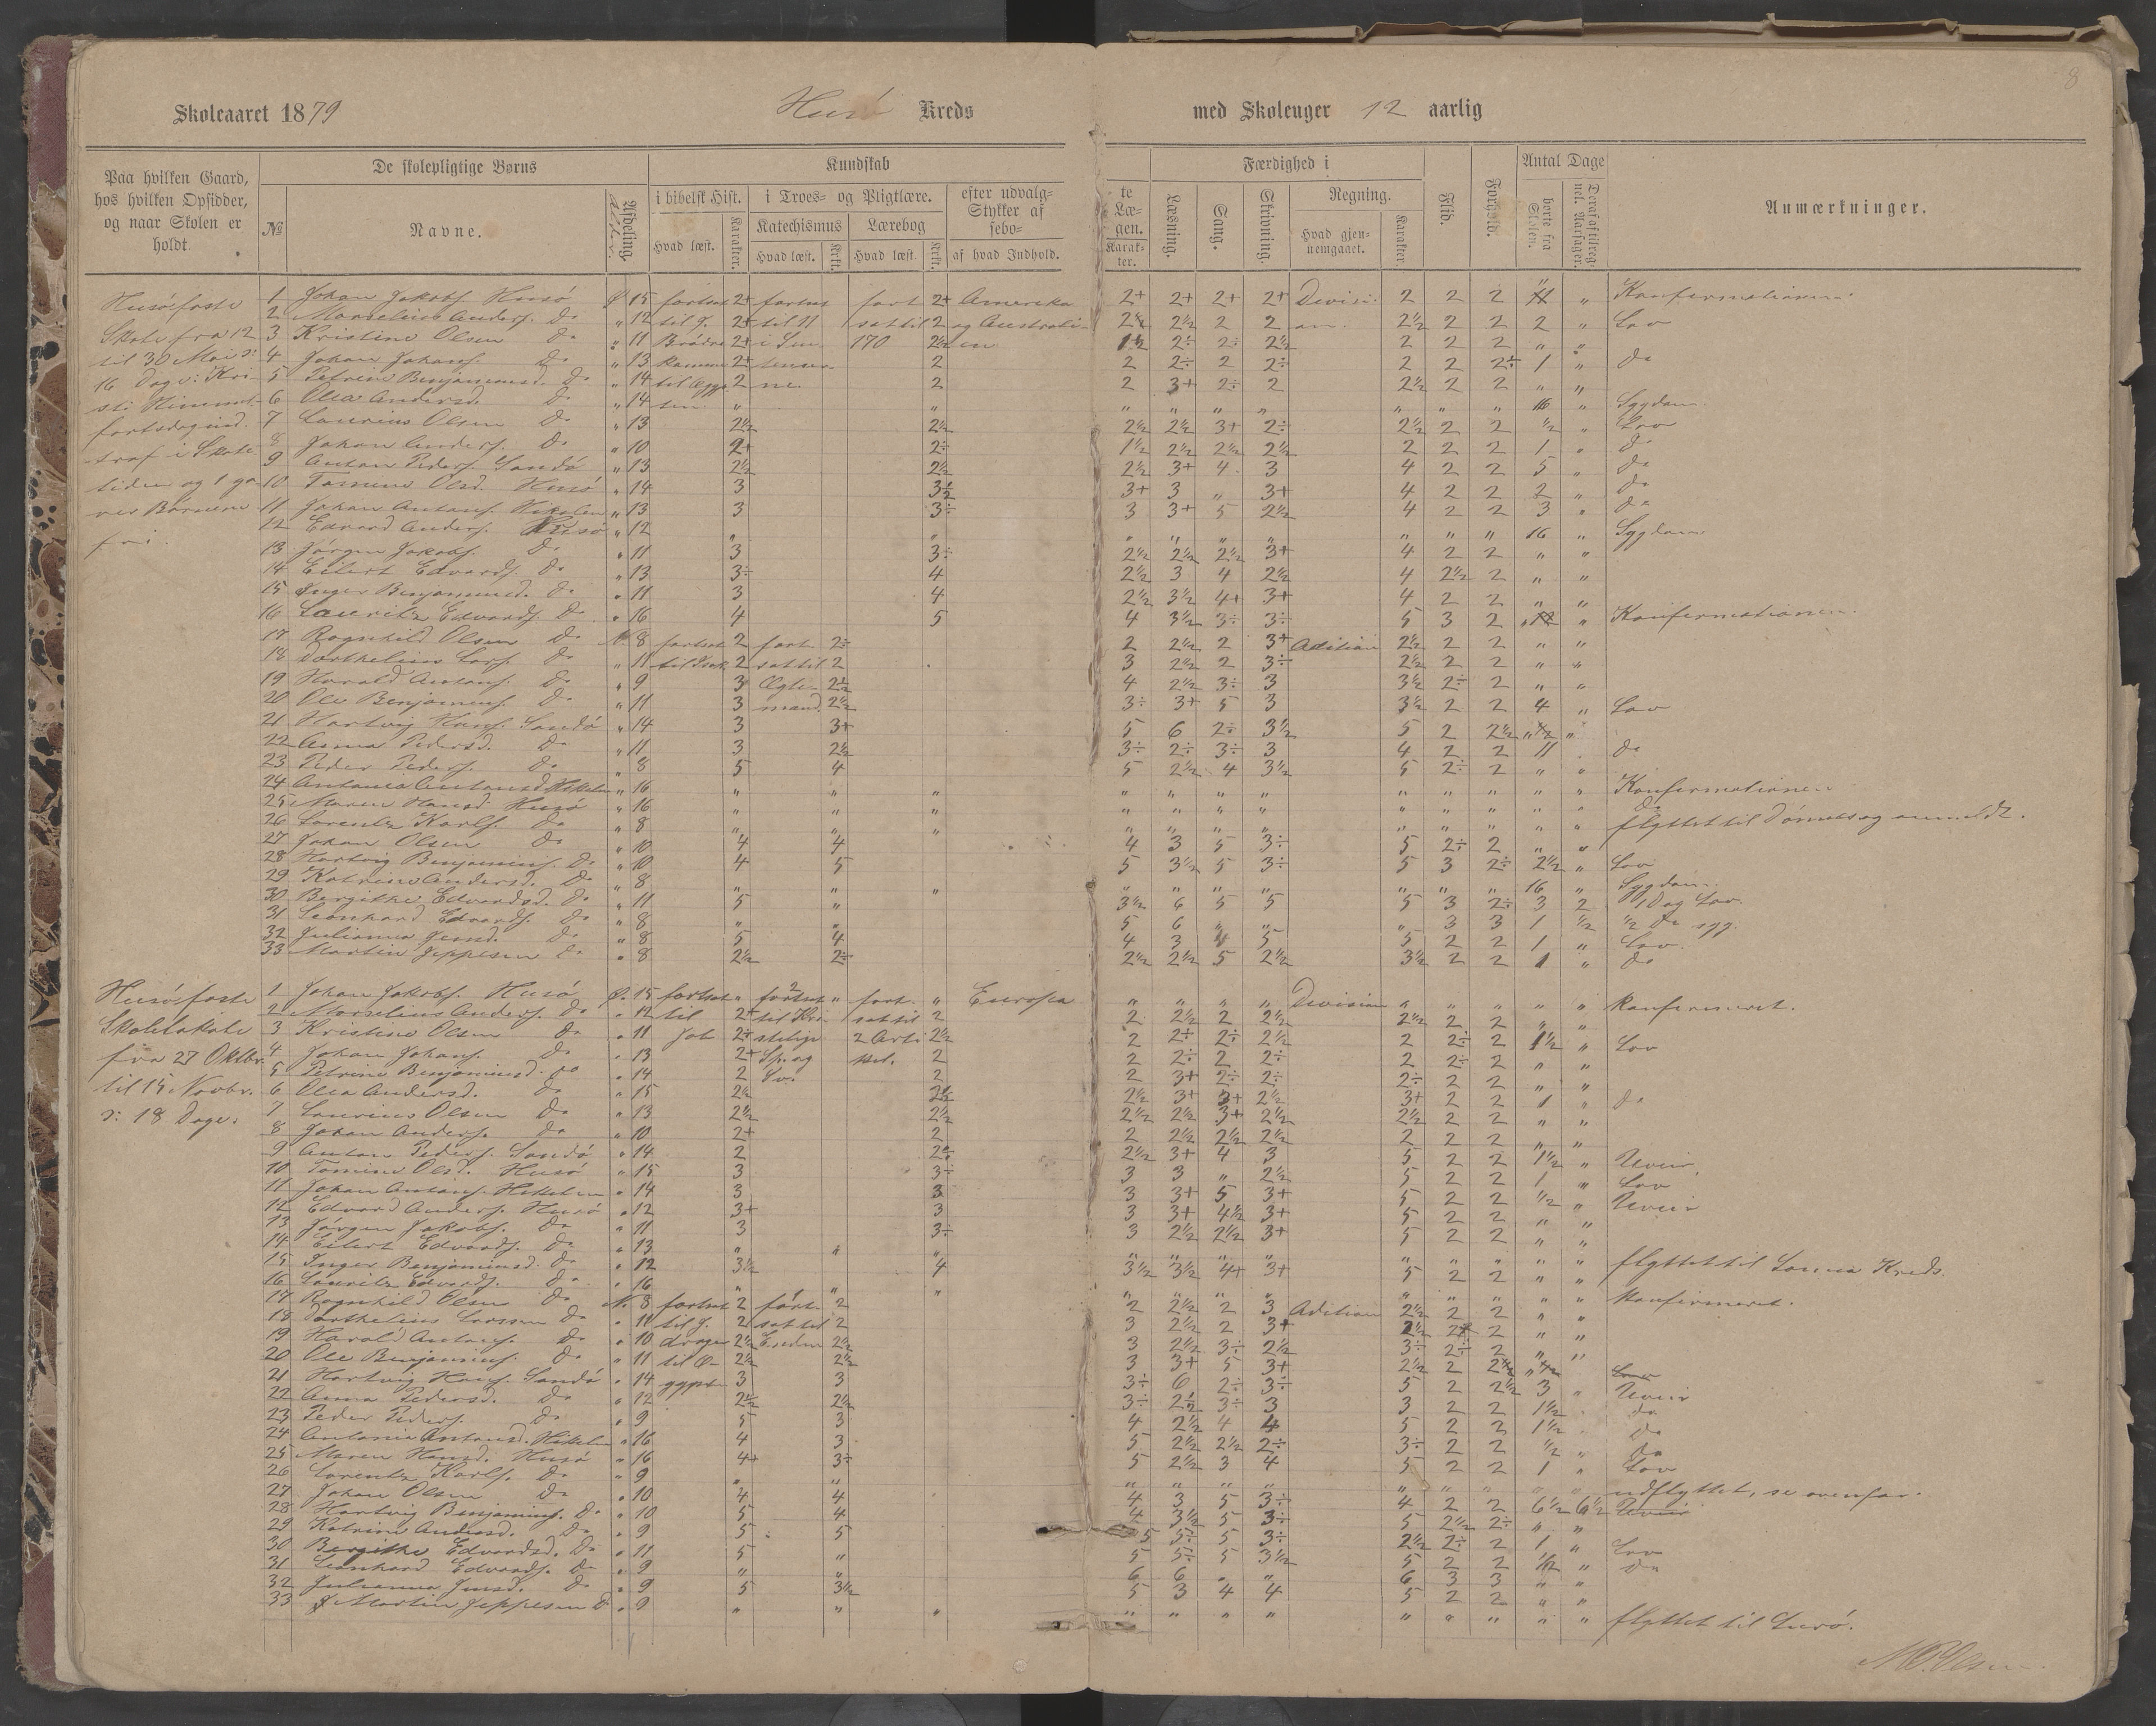 8
Skoleaaret 1879 Husö Kreds med Skoleuger 12 aarlig
Paa hvilken Gaard, hos hvilken Opsidder, og naar Skolen er holdt.
De skolepligtige Børns
№
Navne.
Afdeling.
Kundskab
i bibelsk Hist.
Hvad læst.
Karakter.
i Troes- og Pligtlære.
Katechismus
Hvad læst.
Krkt.
Lærebog
Hvad læst.
Krkt.
efter udvalg-
Stykker af
sebo-
af hvad Indhold.
te
Læ-
gen.
Karak-
ter.
Færdighed i
Læsning.
Sang.
Skrivning.
Regning.
Hvad gjen-
nemgaaet.
Karakter.
Flid.
Forhold.
Antal Dage
borte fra Skolen.
Deraf af tilreg-
nel. Aarsager.
Anmærkninger.
Husö faste
Skole fra 12
til 30 Mai ɔ:
16 Dage: Kri-
sti Himmel-
fartsdag ind-
traf i Skole-
tiden og 1 ga-
ves Börnene
fri.
1 Johan Jakobs. Husö Ø 15 fortsat 2+ fortsat fort 2+ Amerika 2+ 2+ 2+ 2+ Divisi- 2 2 2 " Konfirmationen.
2 Marselius Anders. Do " 12 til J. 2+ til 11 sat til 2 og Australi- 2½ 2½ 2 2 on. 2½ 2 2 2 " Lov
3 Kristine Olsen Do " 11 Brödre 2+ 170 2½ en 2÷ 2÷ 2½ 2 2 2 " "
4 Johan Johans. Do " 13 2+ 2 2 2÷ 2 2÷ 2 2 2÷ 1 " Do
5 Petrine Benjaminsd. Do " 14 2 2 2 3+ 2÷ 2 2½ 2 2 " "
6 Olea Andersd. Do " 14 " " " " " " " " " 16 " Sygdom
7 Laurius Olsen Do " 13 2½ 2½ 2½ 2½ 3+ 2÷ 2½ 2 2 ½ " Lov
8 Johan Anders. Do " 10 2+ 2÷ 1½ 2½ 2½ 2½ 2 2 2 1 " Do
9 Anton Peders. Sandö " 13 2½ 2½ 2½ 3+ 4 3 4 2 2 5 " Do
10 Tomine Olsd. Husö " 14 3 3½ 3+ 3 " 3+ 4 2 2 2 " Do
11 Johan Antons. " 13 3 3÷ 3 3+ 5 2½ 4 2 2 3 " Do
12 Edvard Anders. Husö " 12 " " " " " " " " " 16 " Sygdom
13 Jörgen Jakobs. Do " 11 3 3÷ 2½ 2½ 2½ 3+ 4 2 2 " "
14 Eilert Edvards. Do " 13 3÷ 4 2½ 3 4 2½ 4 2½ 2 " "
15 Inger Benjaminsd. Do " 11 3 4 2½ 3½ 4+ 3+ 4 2 2 " "
16 Lauritz Edvards. Do " 16 4 5 4 3½ 3÷ 3÷ 5 3 2 " Konfirmationen.
17 Ragnhild Olsen Do N. 8 fortsat 2 fort- 2÷ 2 2½ 2 3+ Adition 2½ 2 2 " "
18 Dorthelius Lars. Do " 11 2 sat til 2 3 2½ 2 3÷ 2½ 2 2 " "
19 Harald Antons. Do " 9 3 Ægte- 2½ 4 2½ 3÷ 3 3½ 2÷ 2 " "
20 Ole Benjamins. Do " 11 3 mand. 2½ 3÷ 3+ 5 3 3½ 2 2 4 " Lov
21 Hartvig Hans. Sandö " 14 3 3+ 5 6 2÷ 3½ 5 2 2½ "
22 Anna Pedersd. Do " 11 3 2½ 3÷ 2÷ 3÷ 3 4 2 2 11 Do
23 Peder Peders. Do " 8 5 4 5 2½ 4 3½ 5 2÷ 2 " "
24 Antonia Antonsd. " 16 " " " " " " " " " " " " Konfirmationen
25 Maren Hansd. Husö " 16 " " " " " " " " " " " " Do
26 Lorentz Karls. Do " 8 " " " " " " " " " " " " flyttet til
27 Johan Olsen Do " 10 4 4 4 3 5 3÷ 5 2÷ 2 " "
28 Hartvig Benjamins. Do " 10 4 5 5 3½ 5 3÷ 5 3 2÷ 2½ " Lov
29 Katrine Andersd. Do " 8 " " " " " " " " " " 16 " Sygdom
30 Bergithe Edvardsd. Do " 11 5 " 3½ 6 5 5 5 3 2÷ 3 2 1 Dag Lov
31 Leonhard Edvards. Do " 8 " " 5 6 " " " 3 3 1 ½ ½ Do syg.
32 Julianna Jensd. Do " 8 5 4 4 3 5 5 2 2 1 " Lov.
33 Martin Jeppesen Do " 8 2½ 2÷ 2½ 2½ 5 2½ 3½ 2 2 1 " Do
Husö faste
Skolelokale
fra 27 Oktbr.
til 15 Novbr.
ɔ: 18 Dage.
1 Johan Jakobs. Husö Ø. 15 fortsat " fortsat " fort- " Europa " " " " Division " " " " " konfirmeret.
2 Marselius Anders. Do " 12 til 2+ til Kri- sat til 2 2 2½ 2 2½ 2½ 2 2 " "
3 Kristine Olsen Do " 11 Job 2+ stelige 2 Arti- 2½ 2 2÷ 2÷ 2½ 2 2÷ 2 1½ " Lov
4 Johan Johans. Do " 13 2+ Sp. og kel. 2 2 2÷ 2 2÷ 2 2÷ 2 " "
5 Petrine Benjaminsd. Do " 14 2 Sv. 2 2 3+ 2÷ 2÷ 2÷ 2 2 " "
6 Olea Andersd. Do " 15 2½ 2½ 2½ 3+ 3+ 2½ 3+ 2 2 1 " Do
7 Laurius Olsen Do " 13 2½ 2½ 2½ 2½ 3+ 2½ 2½ 2 2 " "
8 Johan Anders. Do " 10 2+ 2 2 2½ 2½ 2½ 2 2 2 " "
9 Anton Peders. Sandö " 14 2 2÷ 2½ 3+ 4 3 5 2 2 1½ " Uveir.
10 Tomine Olsd. Husö " 15 3 3÷ 3 3 " 2½ 5 2 2 1 " Lov
11 Johan Antons. " 14 3 3 3 3+ 5 3+ 5 2 2 ½ " Uveir
12 Edvard Anders. Husö " 12 3+ 3 3 3+ 4½ 3+ 5 2 2 " "
13 Jörgen Jakobs. Do " 11 3 3÷ 3 2½ 2½ 3+ 5 2 2 " "
14 Eilert Edvards. Do " 13 " " " " " " " " " " " " flyttet til Kreds
15 Inger Benjaminsd. Do " 12 3½ 4 3½ 3½ 4+ 3+ 5 2 2 " "
16 Lauritz Edvards. Do " 16 " " " " " " " " " " " " konfirmeret.
17 Ragnhild Olsen Do N. 8 fortsat 2 fort- 2 2 2½ 2 3 Adition 2½ 2 2 " "
18 Dorthelius Larssen Do " 11 til J. 2 sat til 2 3 2½ 2 3+ 2½ 2+ 2 " "
19 Harald Antons. Do " 10 drager 2½ Enden 2½ 3 2½ 3÷ 2½ 3÷ 2÷ 2 " "
20 Ole Benjamins. Do " 11 til Æ- 2½ 2½ 3 3+ 5 3+ 2½ 2 "
21 Hartvig Hans. Sandö " 14 gypt. 3 3 3÷ 6 2÷ 3÷ 5 2 2½ 3 " Uveir
22 Anna Pedersd. Do " 12 2½ 2½ 3÷ 2½ 3÷ 3 3 2 2 1½ Do
23 Peder Peders. Do " 9 5 3 4 2½ 4 4 5 2 2 1½ " Do
24 Antonia Antonsd. " 16 4 3 5 2½ 2½ 2÷ 3÷ 2 2 ½ " Do
25 Maren Hansd. Husö " 16 4+ 3÷ 5 2½ 3 4 5 2 2 1 " Lov
26 Lorentz Karls. Do " 9 " " " " " " " " " " " udflyttet, se ovenfor.
27 Johan Olsen Do " 10 4 4 4 3 5 3÷ 4 2 2 6½ 6½ Uveir
28 Hartvig Benjamins. Do " 10 5 4 4 3½ 5 3÷ 5 2½ 2÷ " "
29 Katrine Andersd. Do " 9 5 5 5 5÷ 5 3÷ 2½ 2÷ 2 1 " Lov
30 Bergithe Edvardsd. Do " 11 5 " 5 5÷ 5 3½ 5 2 2 ½ " Do
31 Leonhard Edvards. Do " 9 " " 6 6 " " 6 3 3 " "
32 Julianna Jensd. Do " 9 5 3½ 5 3 4 4 5 2 2 " "
33 Martin Jeppesen Do " 9 " " " " " " " " " " " " flyttet til Lurö.
M. P. Olsen